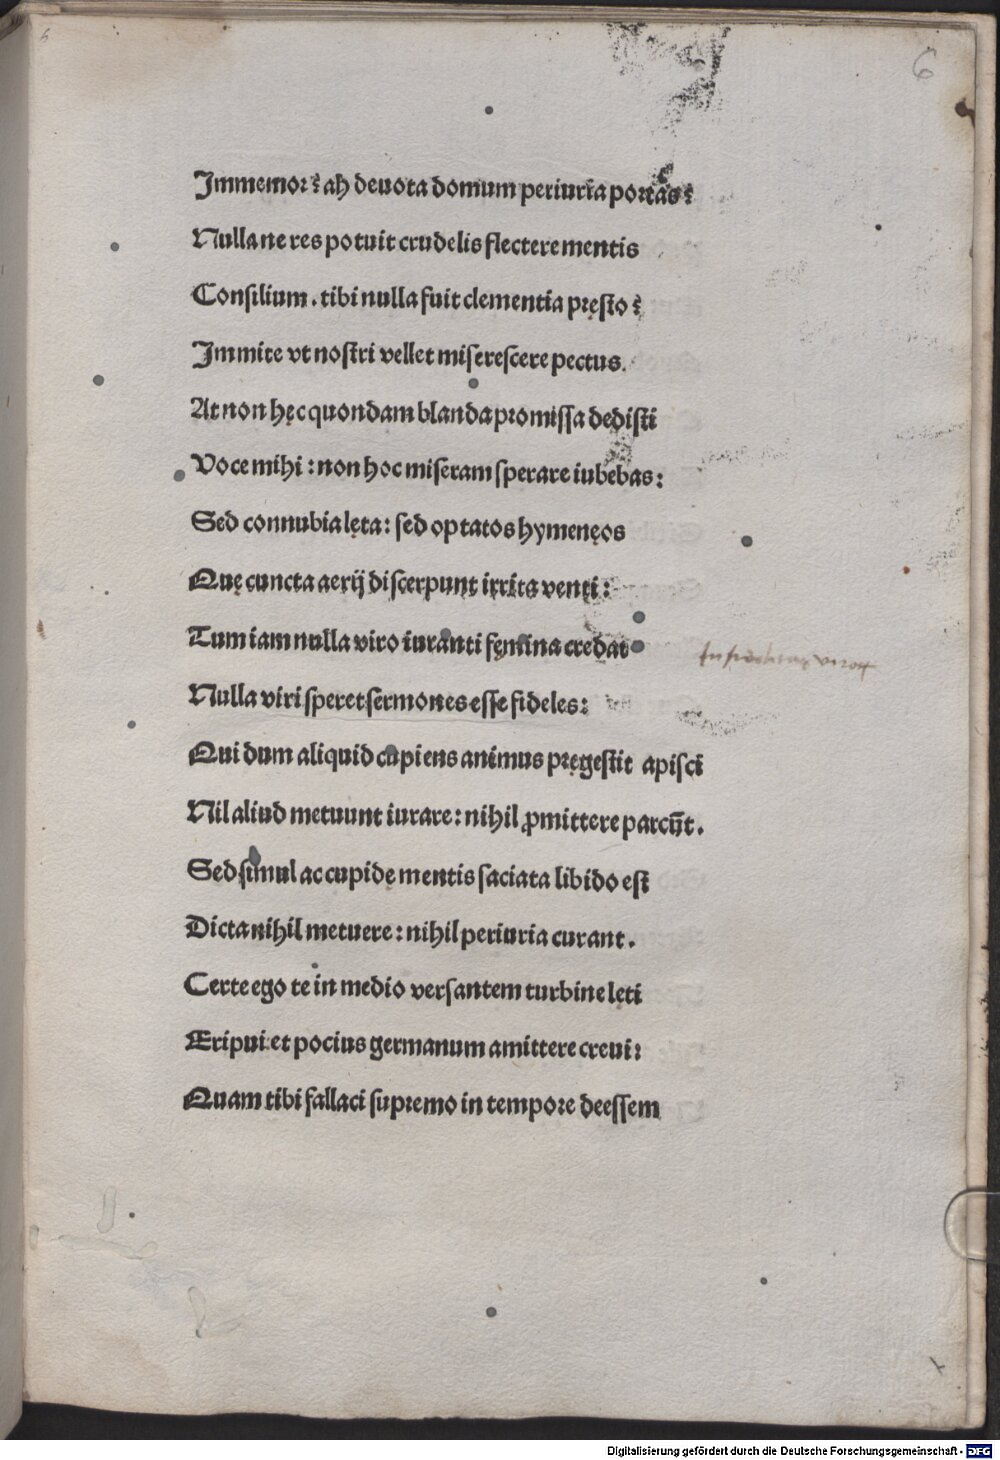 6
Immemor? ah deuota domum periuria portas?
Nulla ne res potuit crudelis flectere mentis
Consilium. tibi nulla fuit clementia pręsto?
Immite vt nostri vellet miserescere pectus.
At non hęc quondam blanda promissa dedisti
Voce mihi: non hoc miseram sperare iubebas:
Sed connubia lęta: sed optatos hymenęos
Quę cuncta aerij discerpunt irrita venti:
Tum iam nulla viro iuranti fęmina credat
Nulla viri speret sermones esse fideles:
Qui dum aliquid cupiens animus pręgestit apisci
Nil aliud metuunt iurare: nihil ꝓmittere parcūt.
Sed simul ac cupidę mentis saciata libido est
Dicta nihil metuere: nihil periuria curant.
Certe ego te in medio versantem turbine leti
Eripui et pocius germanum amittere creui:
Quam tibi fallaci supremo in tempore deessem
Digitalisierung gefördert durch die Deutsche Forschungsgemeinschaft - DFG